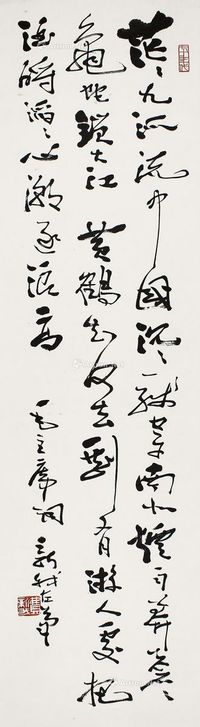 茫茫九派流中国沉沉一线穿南北烟雨莽苍苍
龟蛇锁大江黄鹤知何去剩有游人处把
酒酹滔滔心潮逐浪高
毛主席词 新我左笔